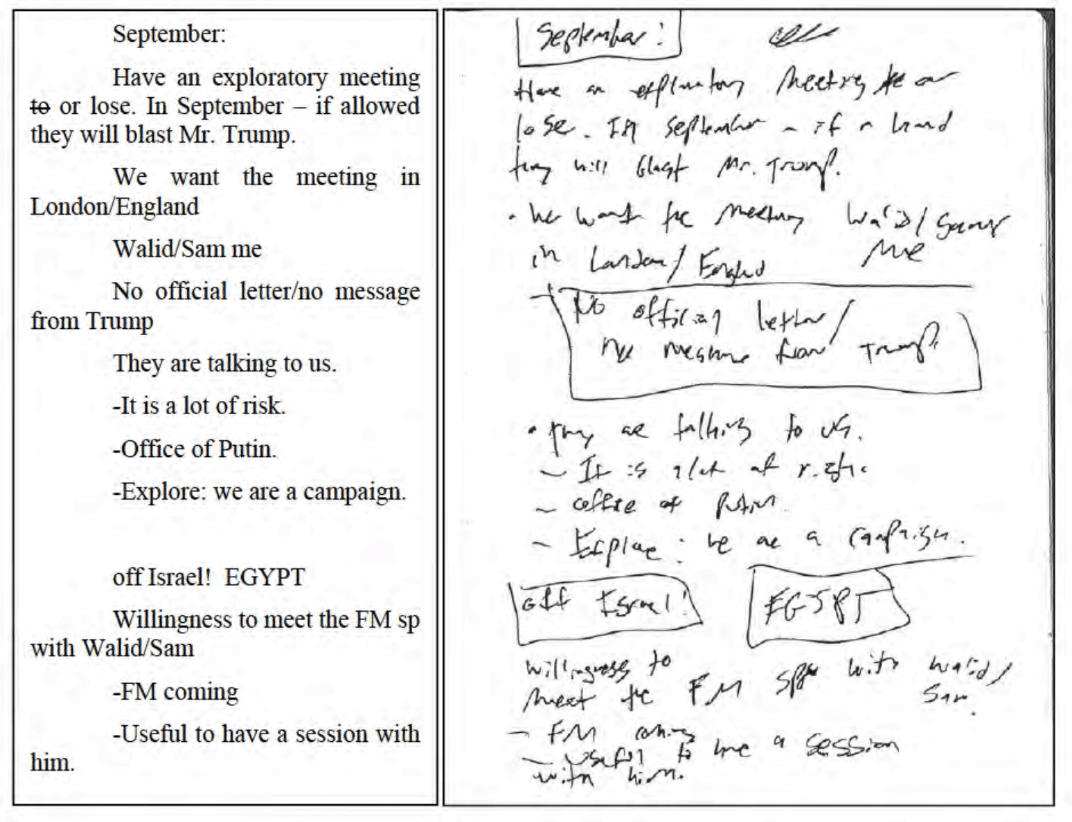 September:
Have an exploratory meeting
to or lose. In September – if allowed
they will blast Mr. Trump.
We want the meeting in
London/England
Walid/Sam me
No official letter/no message
from Trump
They are talking to us.
-It is a lot of risk.
-Office of Putin.
-Explore: we are a campaign.
off Israel! EGYPT
Willingness to meet the FM sp
with Walid/Sam
-FM coming
-Useful to have a session with
him.
September:
Have an exploratory meeting to or
lose. In September - if allowed
they will blast Mr. Trump.
• We want the meeting Walid/Sam
in London/England me
No official letter/
no message from Trump
• They are talking to us.
- It is a lot of risk
- office of Putin.
- Explore: we are a campaign.
off Israel! EGYPT
Willingness to
meet the FM sp with Walid/
Sam
- FM coming
- Useful to have a session
with him.